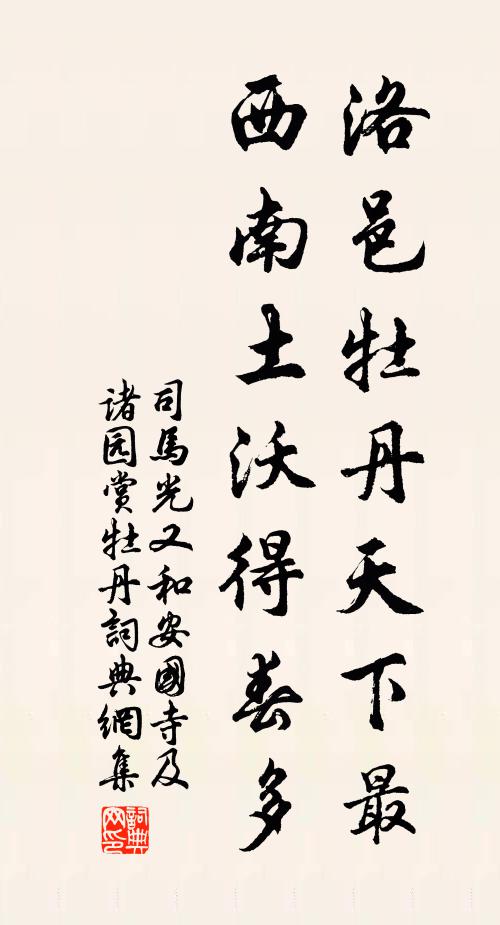 洛邑牡丹天下最
西南土沃得春多
司馬光又和安國寺及
诸园赏牡丹詞典網集
詞典
网印